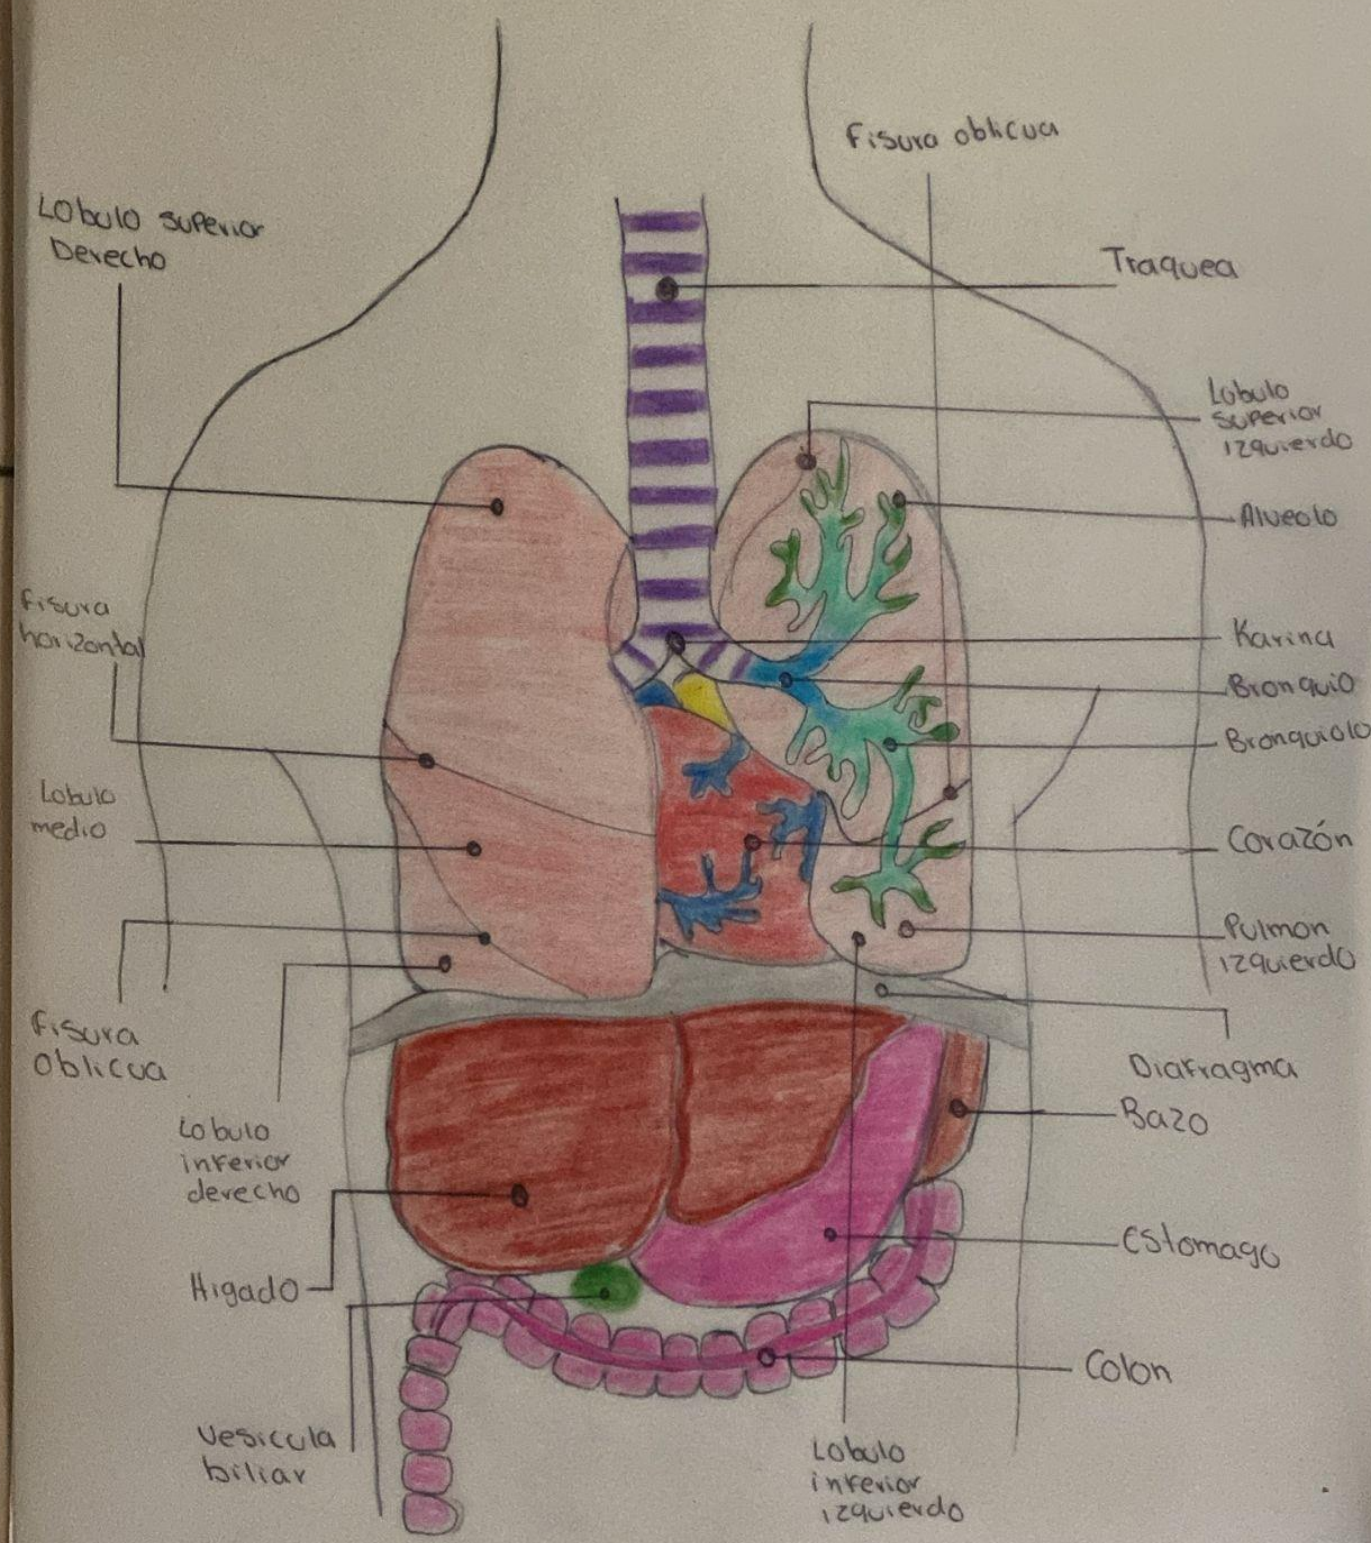 Fisura oblicua
Lobulo superior
Derecho
Traquea
Lobulo
superior
izquierdo
Alveolo
Fisura
horizontal
Karina
Bronquio
Bronquiolo
Lobulo
medio
Corazón
Pulmon
izquierdo
Fisura
Oblicua
Diafragma
Bazo
Lobulo
inferior
derecho
Estomago
Higado
Colon
Vesicula
biliar
Lobulo
inferior
izquierdo